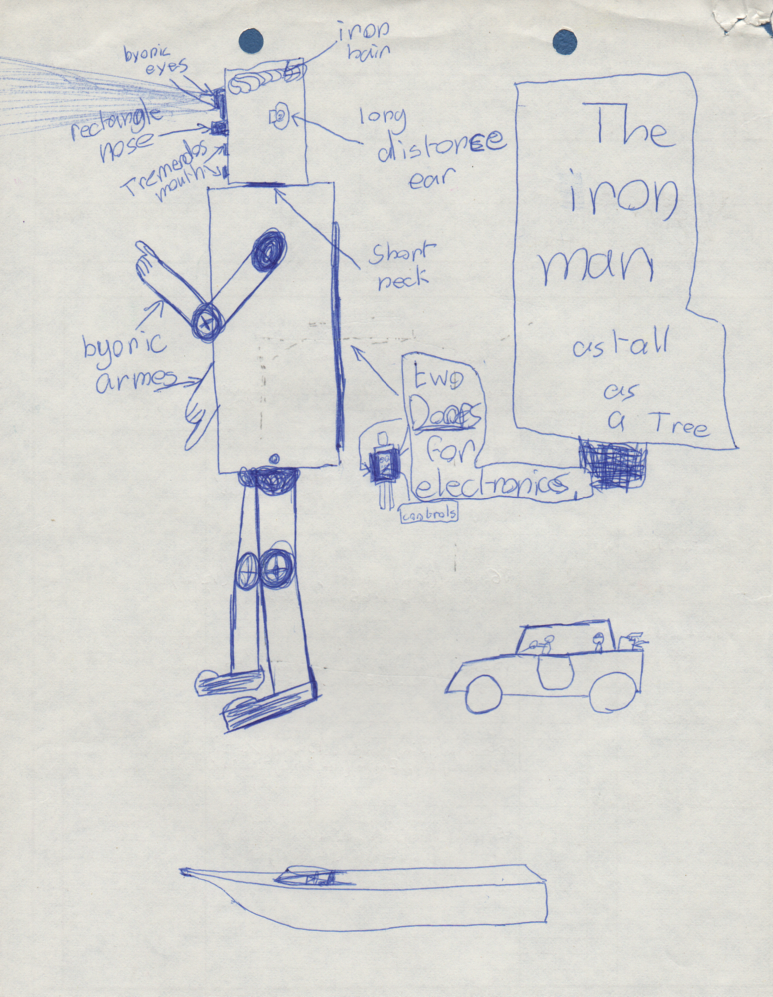 iron
hair
byonic
eyes
rectangle
nose
Tremendos
mouth
long
distance
ear
short
neck
byonic
armes
two
Doors
for
electronics,
controls
The
iron
man
as tall
as
a Tree